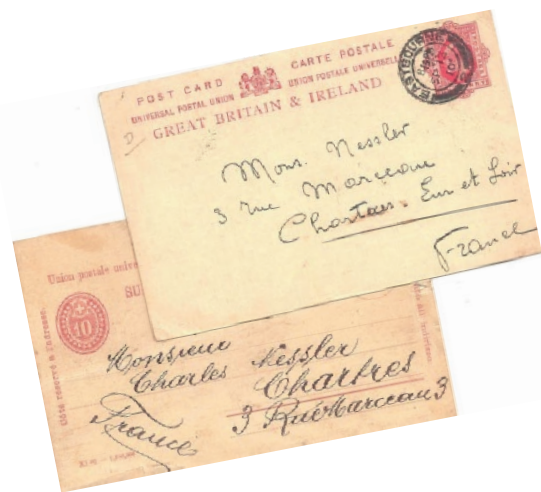 POST CARD CARTE POSTALE
UNIVERSAL POSTAL UNION UNION POSTALE UNIVERSELLE
GREAT BRITAIN & IRELAND
EASTBOURNE
Mons. Nessler
3 rue Marceau
Chartres. Eur et Loir
France
Union postale unive
SU
10
Côté réservé à l'adresse.
Monsieur
Charles Nessler
Chartres
3 Rue Marceau 3
France